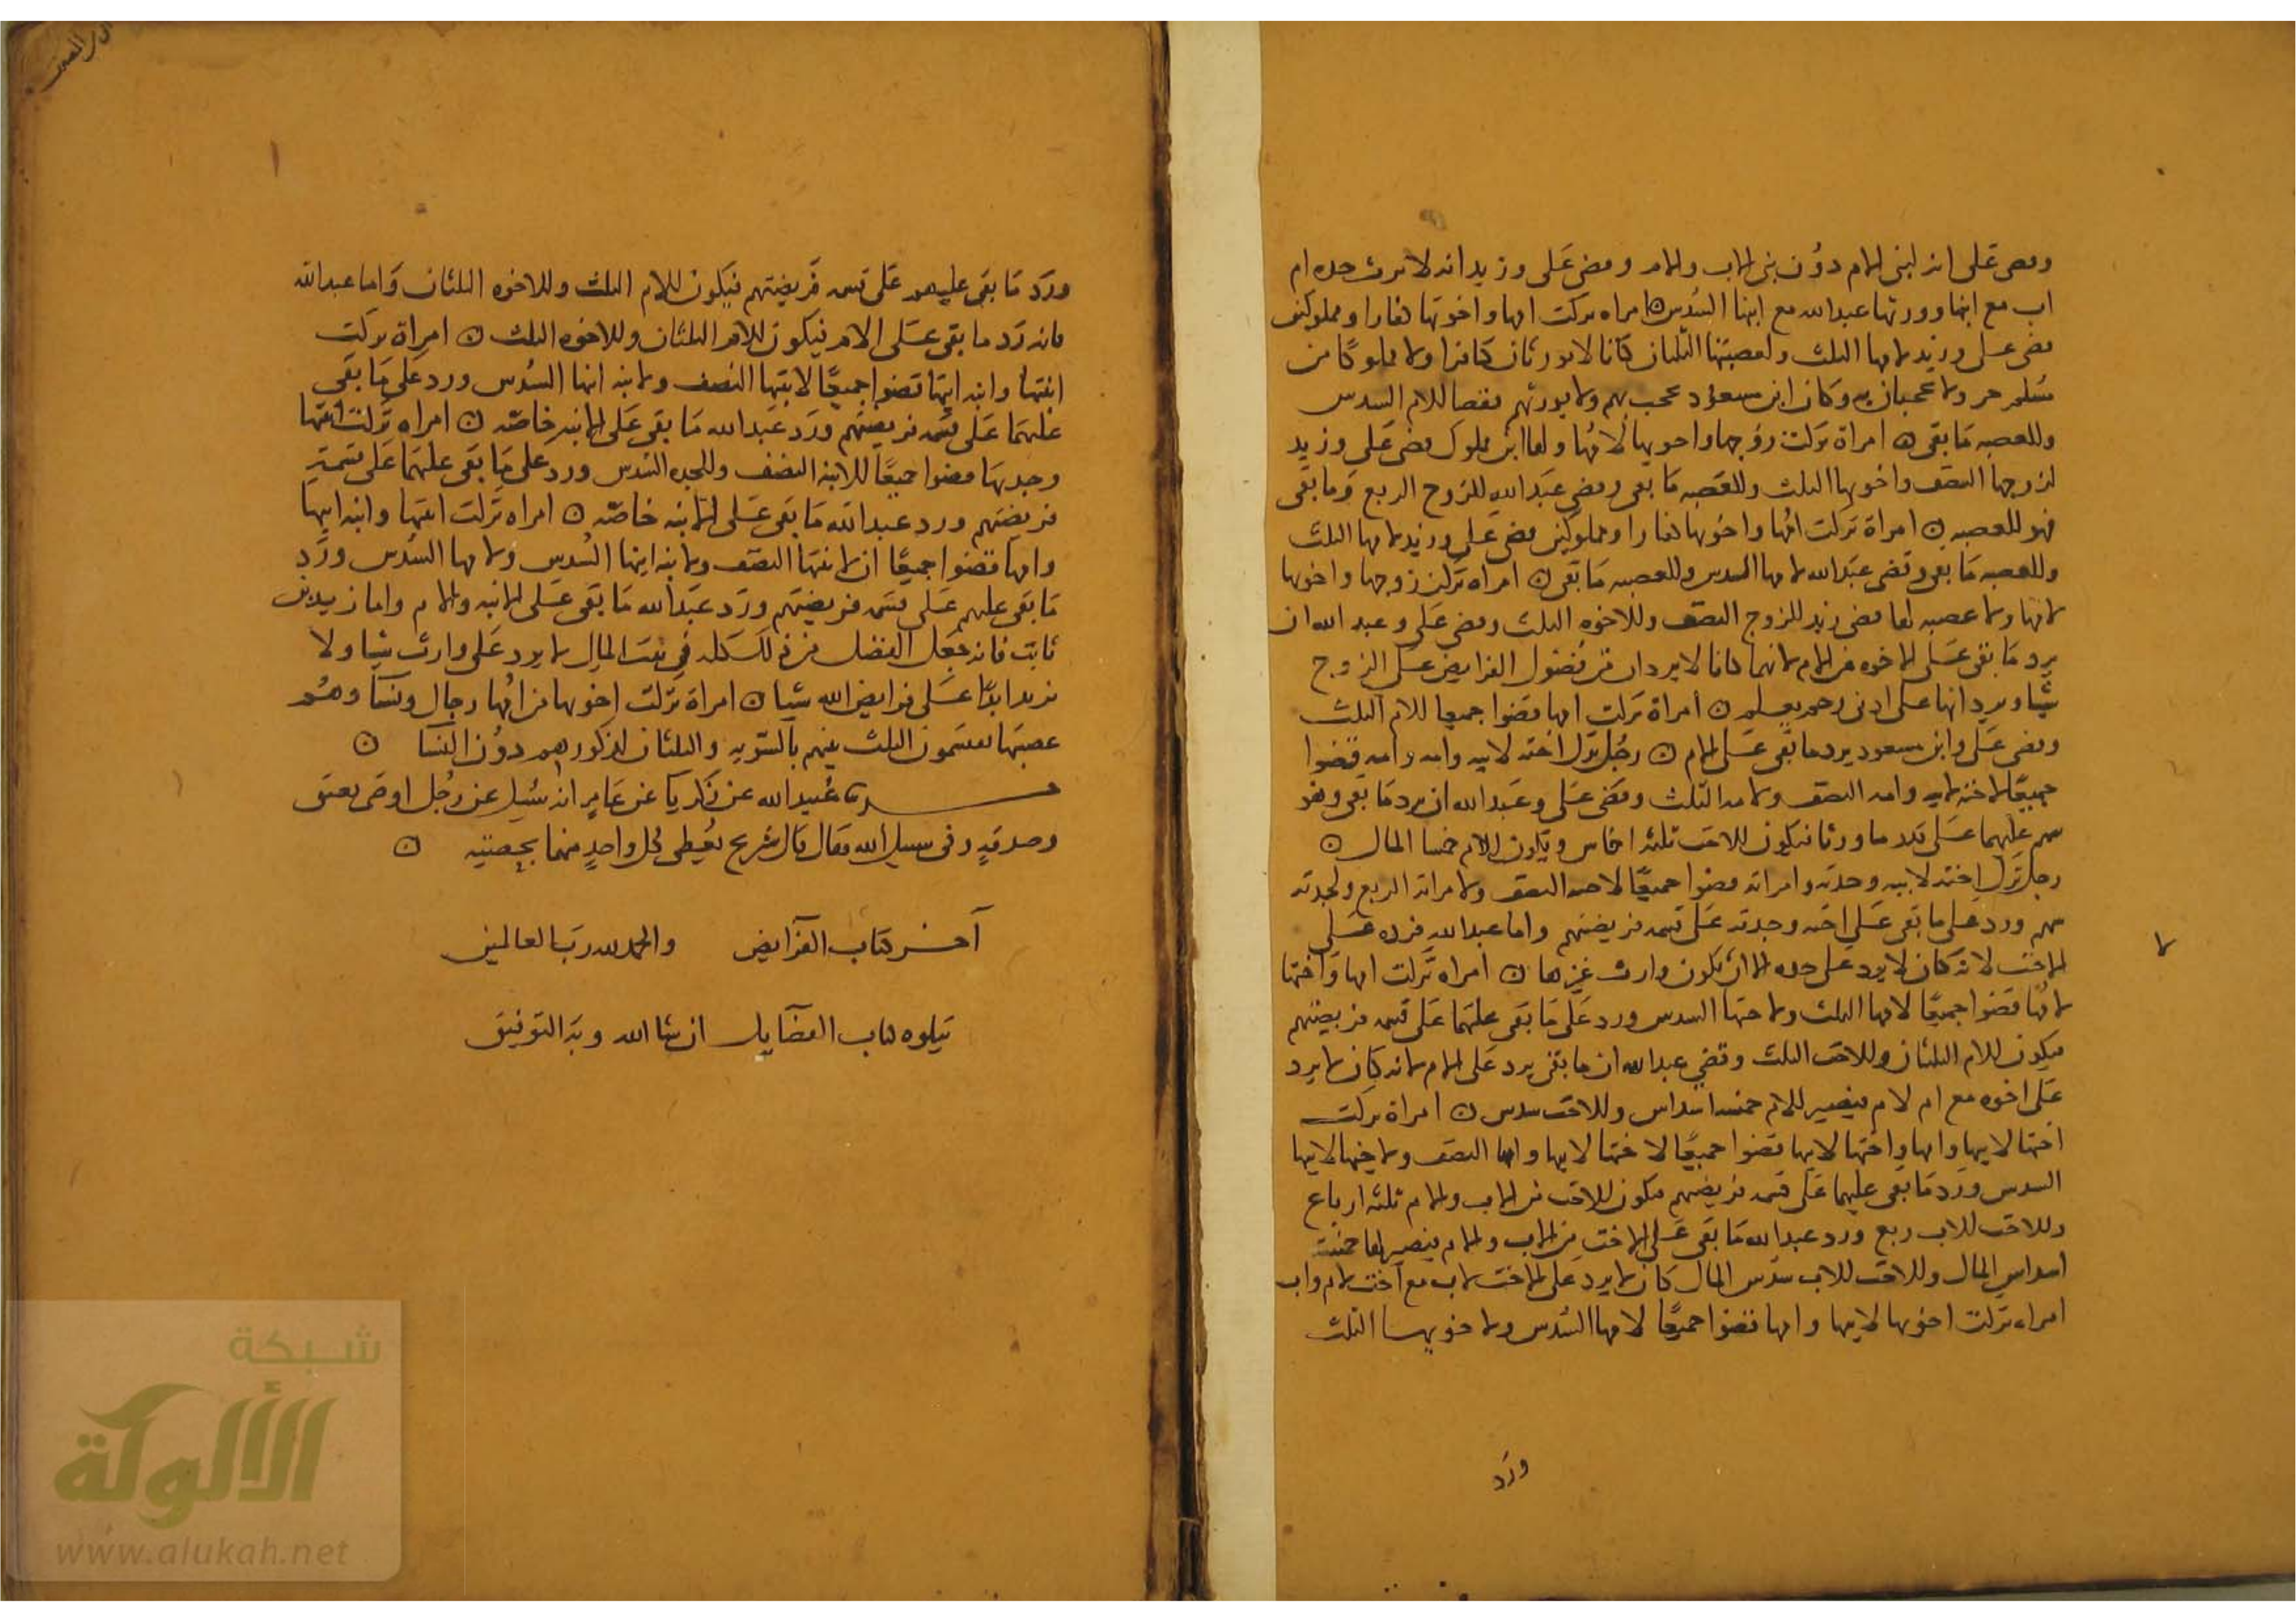 وقضى علي ان لبني الام دون بني الاب والام وقضى علي وزيد انه لا ترث جده ام
اب مع ابنها وورثها عبد الله مع ابنها السدس ۞ امراه تركت امها واخوتها كفارا ومملوكين
قضى علي وزيد لامها الثلث ولعصبتها الثلثان كانا لا يورثان كافرا ولا مملوكا من
مسلم حر ولا يحجبان به وكان ابن مسعود يحجب بهم ولا يورثهم فقضا للام السدس
وللعصبه ما بقى ۞ امراة تركت زوجها واخويها لامها ولها ابن مملوك قضى علي وزيد
لزوجها النصف واخويها الثلث وللعصبه ما بقى وقضى عبد الله للزوج الربع وما بقى
فهو للعصبه ۞ امراة تركت امها واخوتها كفارا ومملوكين قضى علي وزيد لامها الثلث
وللعصبه ما بقى وقضى عبد الله لامها السدس وللعصبه ما بقى ۞ امراه تركت زوجها واخوتها
لامها ولا عصبه لها قضى زيد للزوج النصف وللاخوه الثلث وقضى علي وعبد الله ان
يرد ما بقى على الاخوه من الام لانهما كانا لا يردان من فضول الفرايض على الزوج
شيا ويردانها على ادنى رحم يعلم ۞ امراة تركت امها قضوا جميعا للام الثلث
وقضى علي وابن مسعود يرد ما بقى على الام ۞ رجل ترك اخته لابيه وامه وامه قضوا
جميعا لاخته لابيه وامه النصف ولامه الثلث وقضى علي وعبد الله ان يرد ما بقى وهو
سهم عليهما على قدر ما ورثا فيكون للاخت ثلثه اخماس ويكون للام خمسا المال ۞
رجل ترك اخته لابيه وجدته وامراته قضوا جميعا لاخته النصف ولامراته الربع ولجدته
سهم ورد علي ما بقى على اخته وجدته على قسمه فريضتهم واما عبد الله فرده على
الاخت لانه كان لا يرد على جده الا ان يكون وارث غيرها ۞ امراه تركت امها واختها
لامها قضوا جميعا لامها الثلث ولاختها السدس ورد علي ما بقى عليهما على قسمه فريضتهم
فيكون للام الثلثان وللاخت الثلث وقضى عبد الله ان ما بقى يرد على الام لانه كان لا يرد
على اخوه مع ام لام فيصير للام خمسه اسداس وللاخت سدس ۞ امراة تركت
اختها لابيها وامها واختها لابيها قضوا جميعا لاختها لابيها وامها النصف ولاختها لابيها
السدس ورد ما بقى عليهما على قسمه فريضتهم فيكون للاخت من الاب والام ثلثه ارباع
وللاخت للاب ربع ورد عبد الله ما بقى على الاخت من الاب والام فيصير لها خمسه
اسداس المال وللاخت للاب سدس المال كان لا يرد على الاخت لاب مع اخت لام واب
امراه تركت اخوتها لابيها وامها قضوا جميعا لامها السدس ولاخوتها الثلث
ورد
ورد ما بقى عليهم على قسمه فريضتهم فيكون للام الثلث وللاخوه الثلثان واما عبد الله
فانه رد ما بقى على الام فيكون للام الثلثان وللاخوه الثلث ۞ امراة تركت
ابنتها وابنه ابنها قضوا جميعا لابنتها النصف ولابنه ابنها السدس ورد علي ما بقى
عليهما على قسمه فريضتهم ورد عبد الله ما بقى على الابنه خاصه ۞ امراه تركت ابنتها
وجدتها قضوا جميعا للابنه النصف وللجده السدس ورد علي ما بقى عليهما على قسمة
فريضتهم ورد عبد الله ما بقى على الابنه خاصه ۞ امراه تركت ابنتها وابنه ابنها
وامها قضوا جميعا ان لابنتها النصف ولابنه ابنها السدس ولامها السدس ورد
ما بقى عليهم على قسمه فريضتهم ورد عبد الله ما بقى على الابنه والام واما زيد بن
ثابت فانه جعل الفضل من ذلك كله في بيت المال لا يرد على وارث شيا ولا
يزيد ابدا على فرايض الله شيا ۞ امراة تركت اخوتها من امها رجال ونسا وهم
عصبتها يقتسمون الثلث بينهم بالسويه والثلثان لذكورهم دون النسا ۞
عبيد الله عن زكريا عن عامر انه سئيل عن رجل اوصى بعتق
وصدقه وفى سبيل الله فقال قال شريح يعطى كل واحد منهما بحصته ۞
آخر كتاب الفرايض والحمد لله رب العالمين
يتلوه كتاب الفضايل ان شا الله وبه التوفيق
شبكة
الألوكة
www.alukah.net